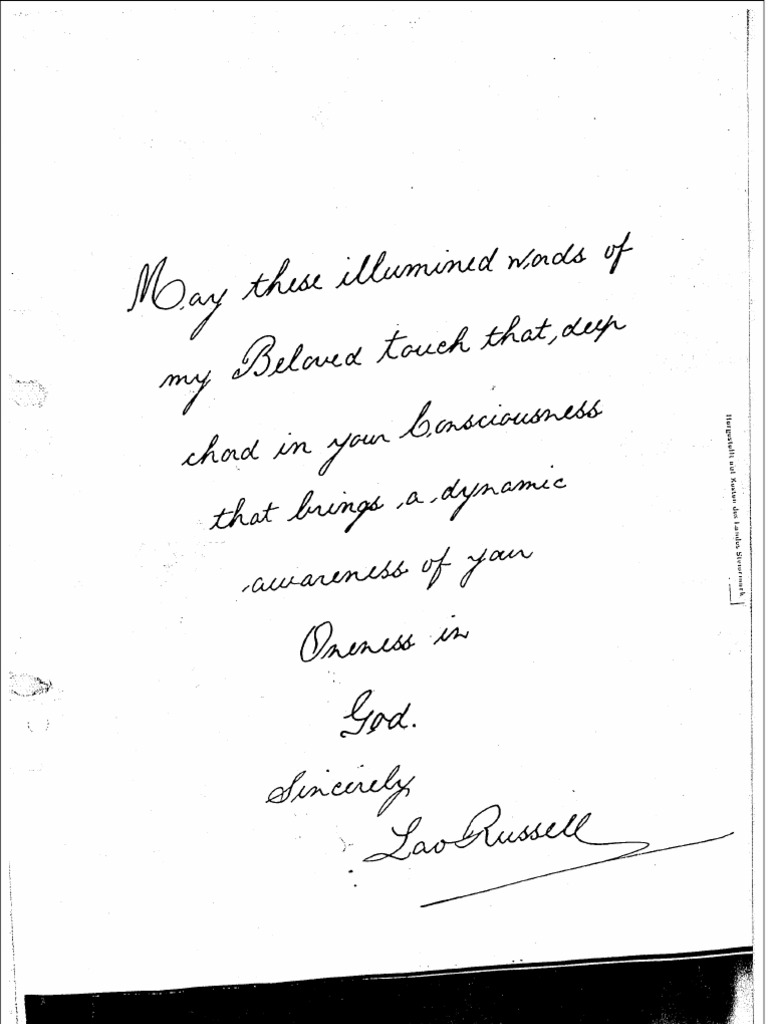 May these illumined words of
my Beloved touch that deep
chord in your Consciousness
that brings a dynamic
awareness of your
Oneness in
God.
Sincerely
Lao Russell
Hergestellt mit Kosten des Landes Steiermark